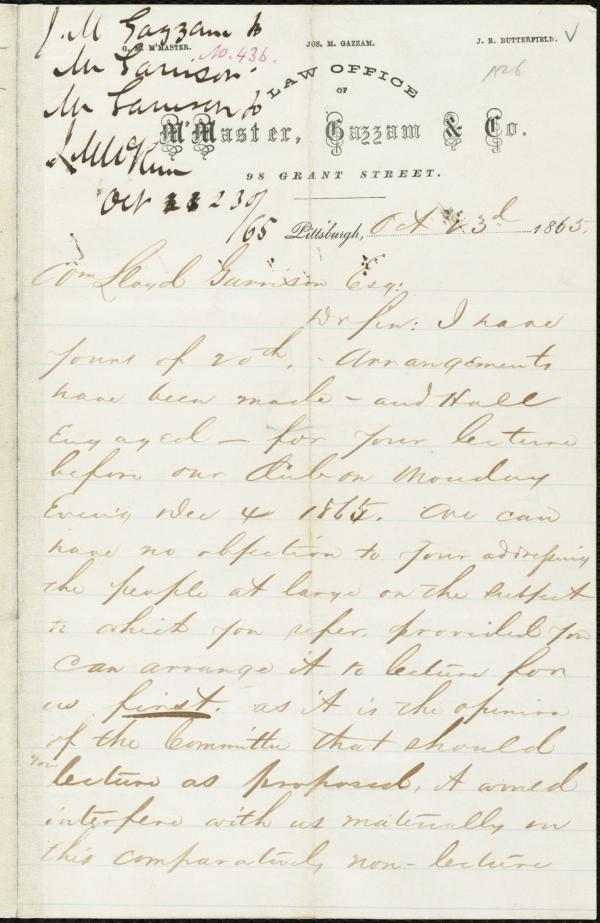 J. M Gazzam to
Mr Garrison.
Mr Garrison to
J. M McKim
Oct 23d/
/65
No. 436.
126
G. M. M'MASTER. JOS. M. GAZZAM. J. R. BUTTERFIELD.
LAW OFFICE
OF
M'Master, Gazzam & Co.
98 GRANT STREET.
Pittsburgh, Oct 23d 1865.
Wm Lloyd Garrison Esq:
Dr Sir: I have
yours of 20th. - Arrangements
have been made - and Hall
Engaged - for your lecture
before our Club on Monday
Even'g Dec 4 1865. We can
have no objection to your addressing
the people at large on the subject
to which you refer, provided you
can arrange it to lecture for
us first. as it is the opinion
of the Committee that should
you lecture as proposed, it would
interfere with us materially in
this comparatively non-lecture